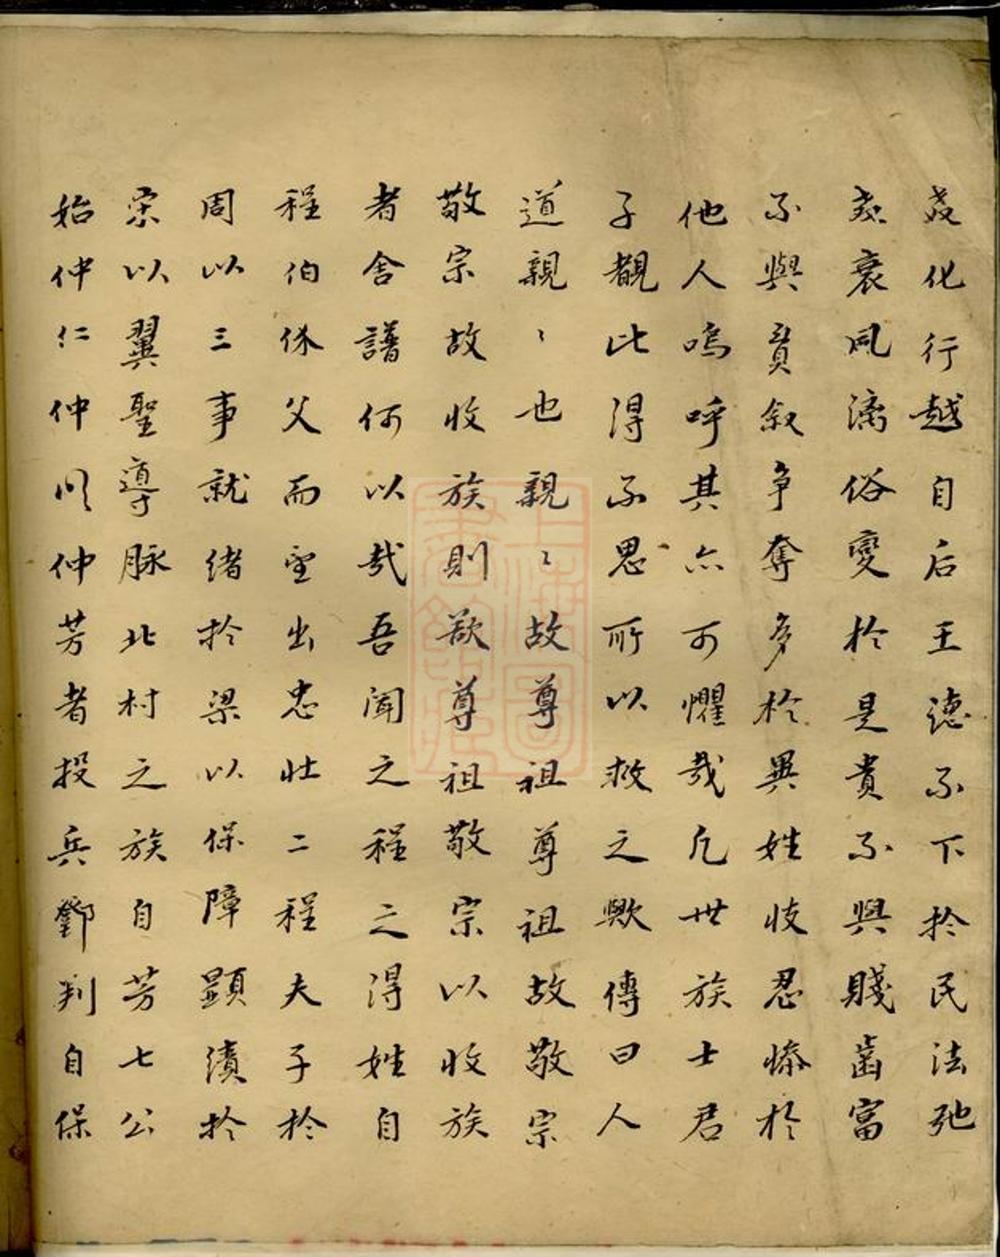 教化行越自后王德不下於民法弛
教衰風漓俗變於是貴不與賤齒富
不與貧敘爭奪多於異姓忮忍慘於
他人嗚呼其亦可懼哉凡世族士君
子觀此得不思所以救之歟傳曰人
道親〻也親〻故尊祖尊祖故敬宗
敬宗故收族則欲尊祖敬宗以收族
者舍譜何以哉吾聞之程之得姓自
程伯休父而望出忠壯二程夫子於
周以三事就緒於梁以保障顯漬於
宋以翼聖導脉北村之族自芳七公
始仲仁仲以仲芳者投兵鄧判自保